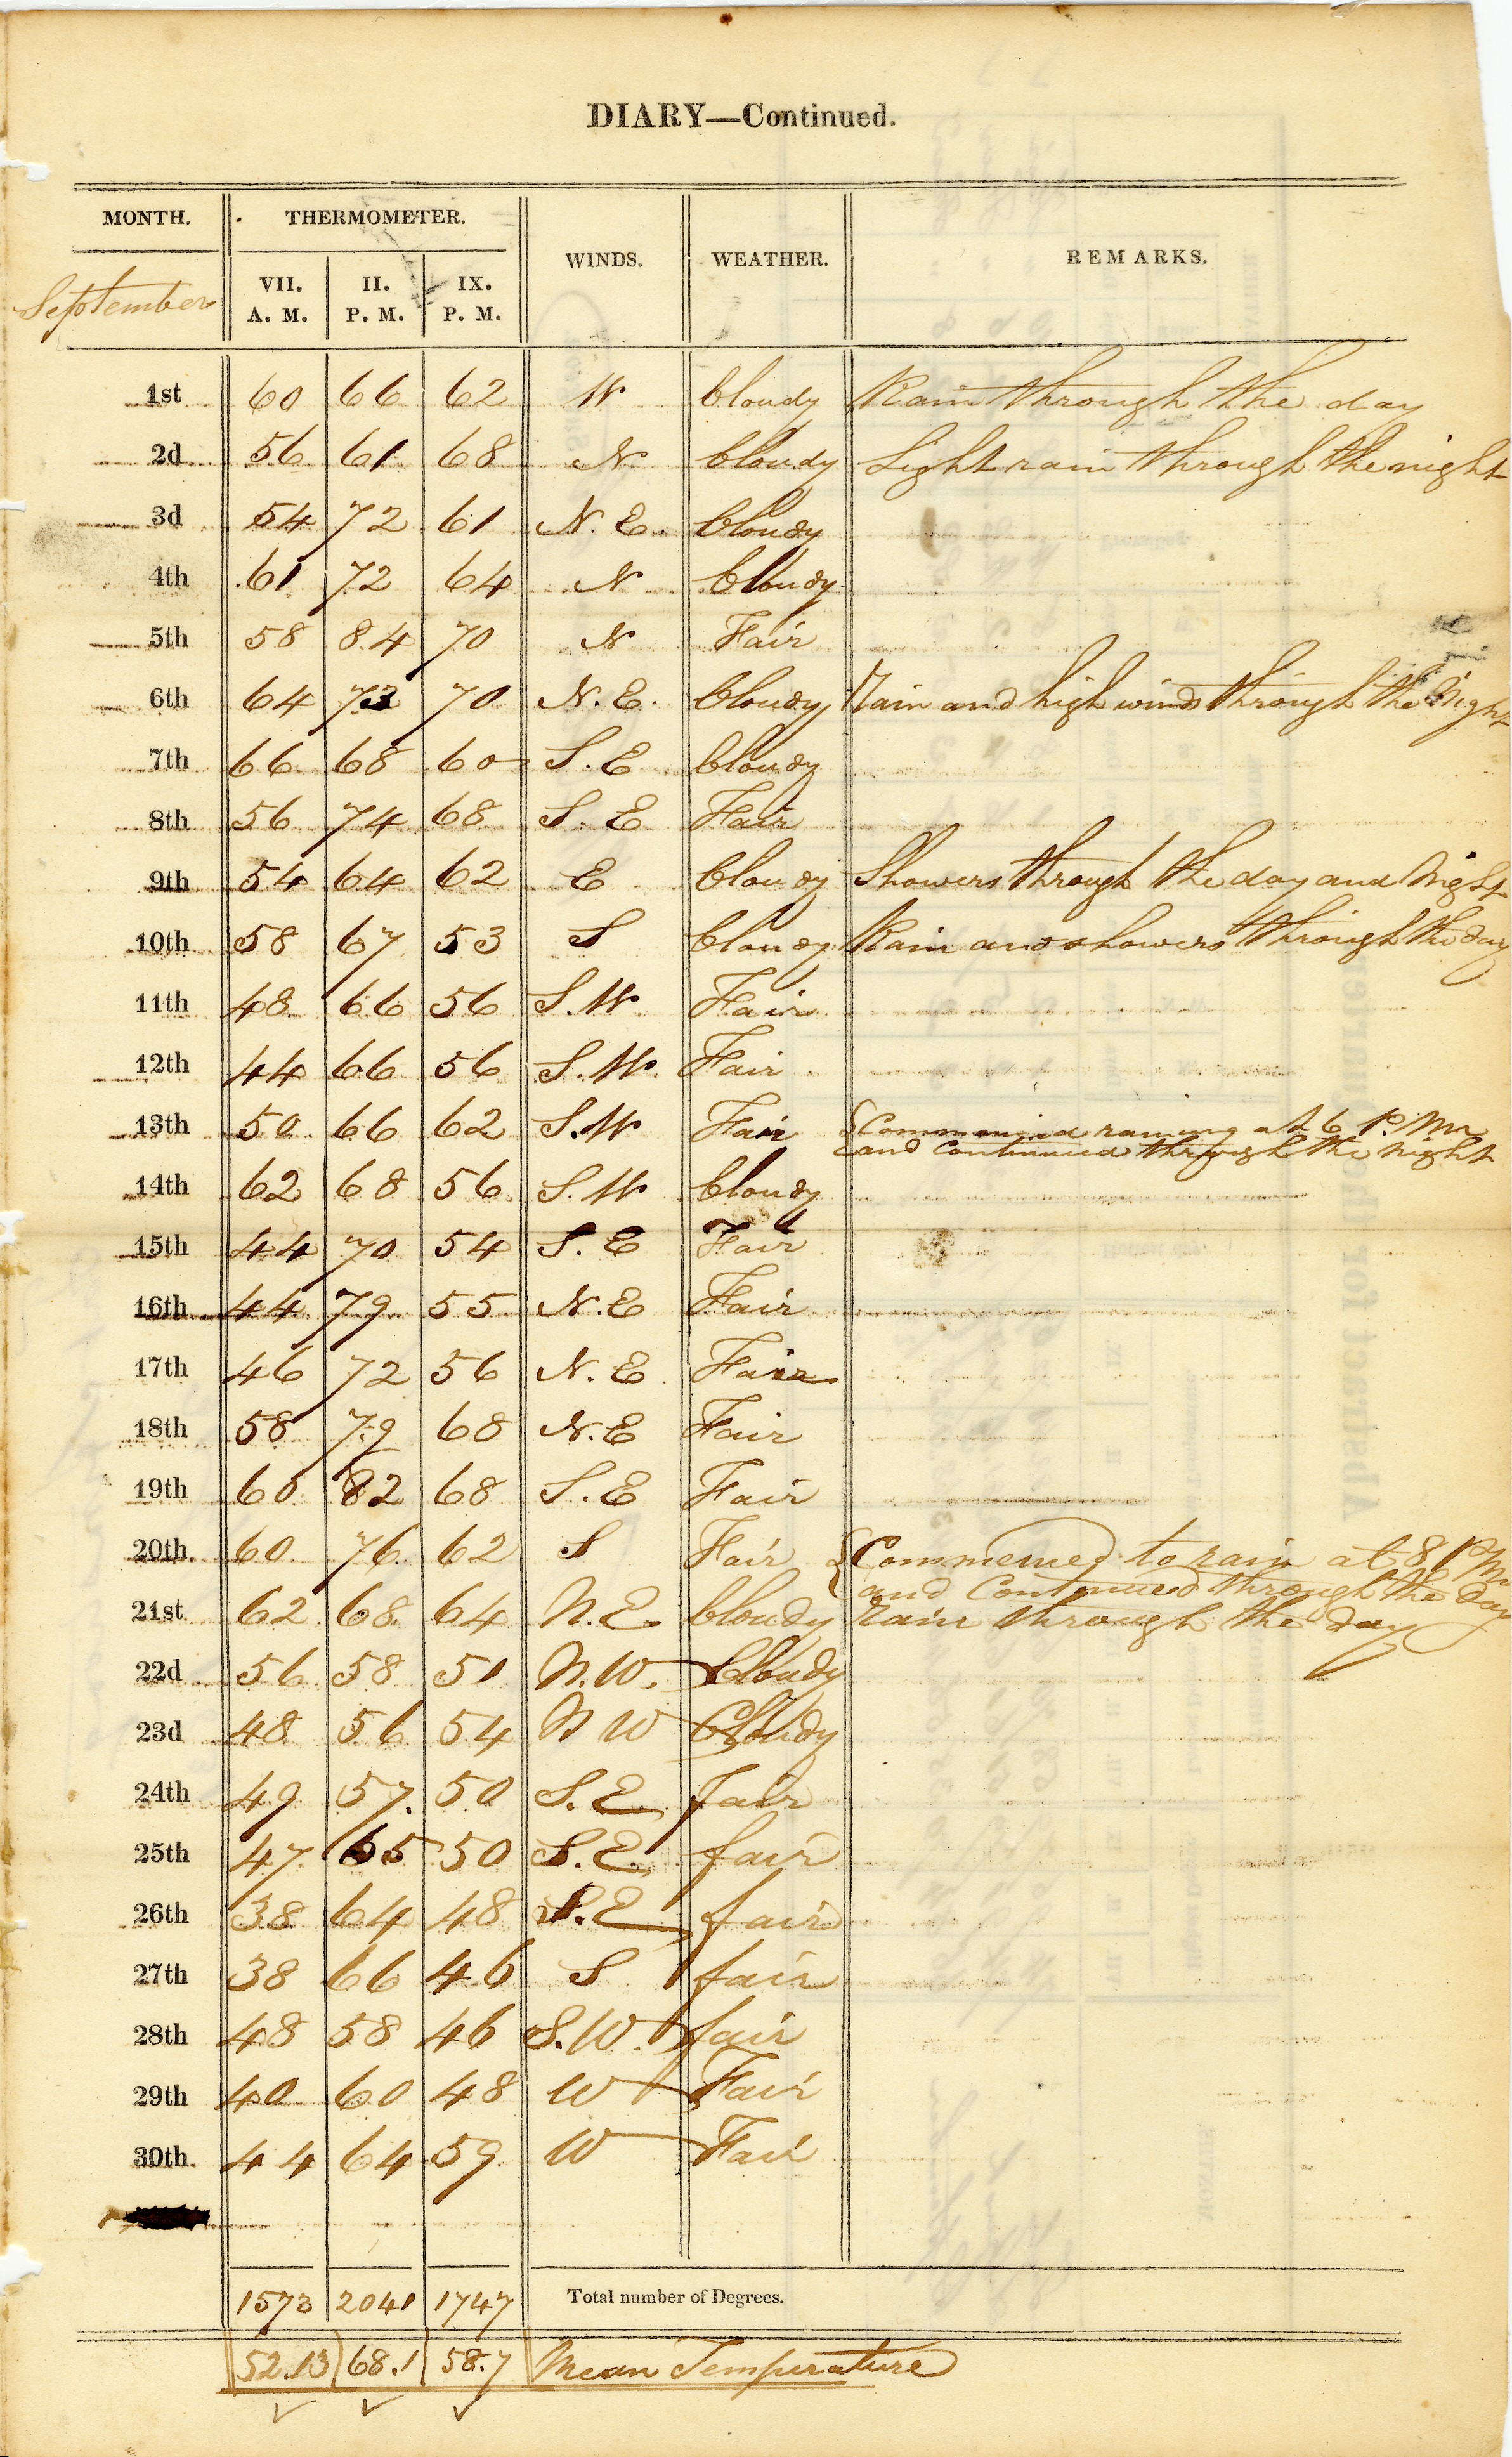 DIARY—Continued.
MONTH. THERMOMETER. WINDS. WEATHER. REMARKS.
September VII. A. M. II. P. M. IX. P. M.
1st 60 66 62 W Cloudy Rain through the day
2d 56 61 68 N Cloudy Light rain through the night
3d 54 72 61 N. E. Cloudy
4th 61 72 64 N Cloudy
5th 58 84 70 N Fair
6th 64 73 70 N. E. Cloudy Rain and high winds through the Night
7th 66 68 60 S. E Cloudy
8th 56 74 68 S. E Fair
9th 54 64 62 E Cloudy Showers through the day and Night
10th 58 67 53 S Cloudy Rain and showers through the day
11th 48 66 56 S. W Fair
12th 44 66 56 S. W. Fair
13th 50 66 62 S. W Fair Commenced raining at 6 P. M
and continued through the night
14th 62 68 56 S. W Cloudy
15th 44 70 54 S. E Fair
16th 44 79 55 N. E Fair
17th 46 72 56 N. E Fair
18th 58 79 68 N. E Fair
19th 60 82 68 S. E Fair
20th. 60 76 62 S Fair Commenced to rain at 8 PM
and Continued through the day
21st 62 68 64 N. E. Cloudy Rain through the day
22d 56 58 51 N. W. Cloudy
23d 48 56 54 N W Cloudy
24th 49 57. 50 S. E. fair
25th 47 65 50 S. E. fair
26th 38 64 48 S. E fair
27th 38 66 46 S fair
28th 48 58 46 S. W. fair
29th 40 60 48 W Fair
30th. 44 64 59 W Fair
1573 2041 1747 Total number of Degrees.
52.13 68.1 58.7 Mean Temperature